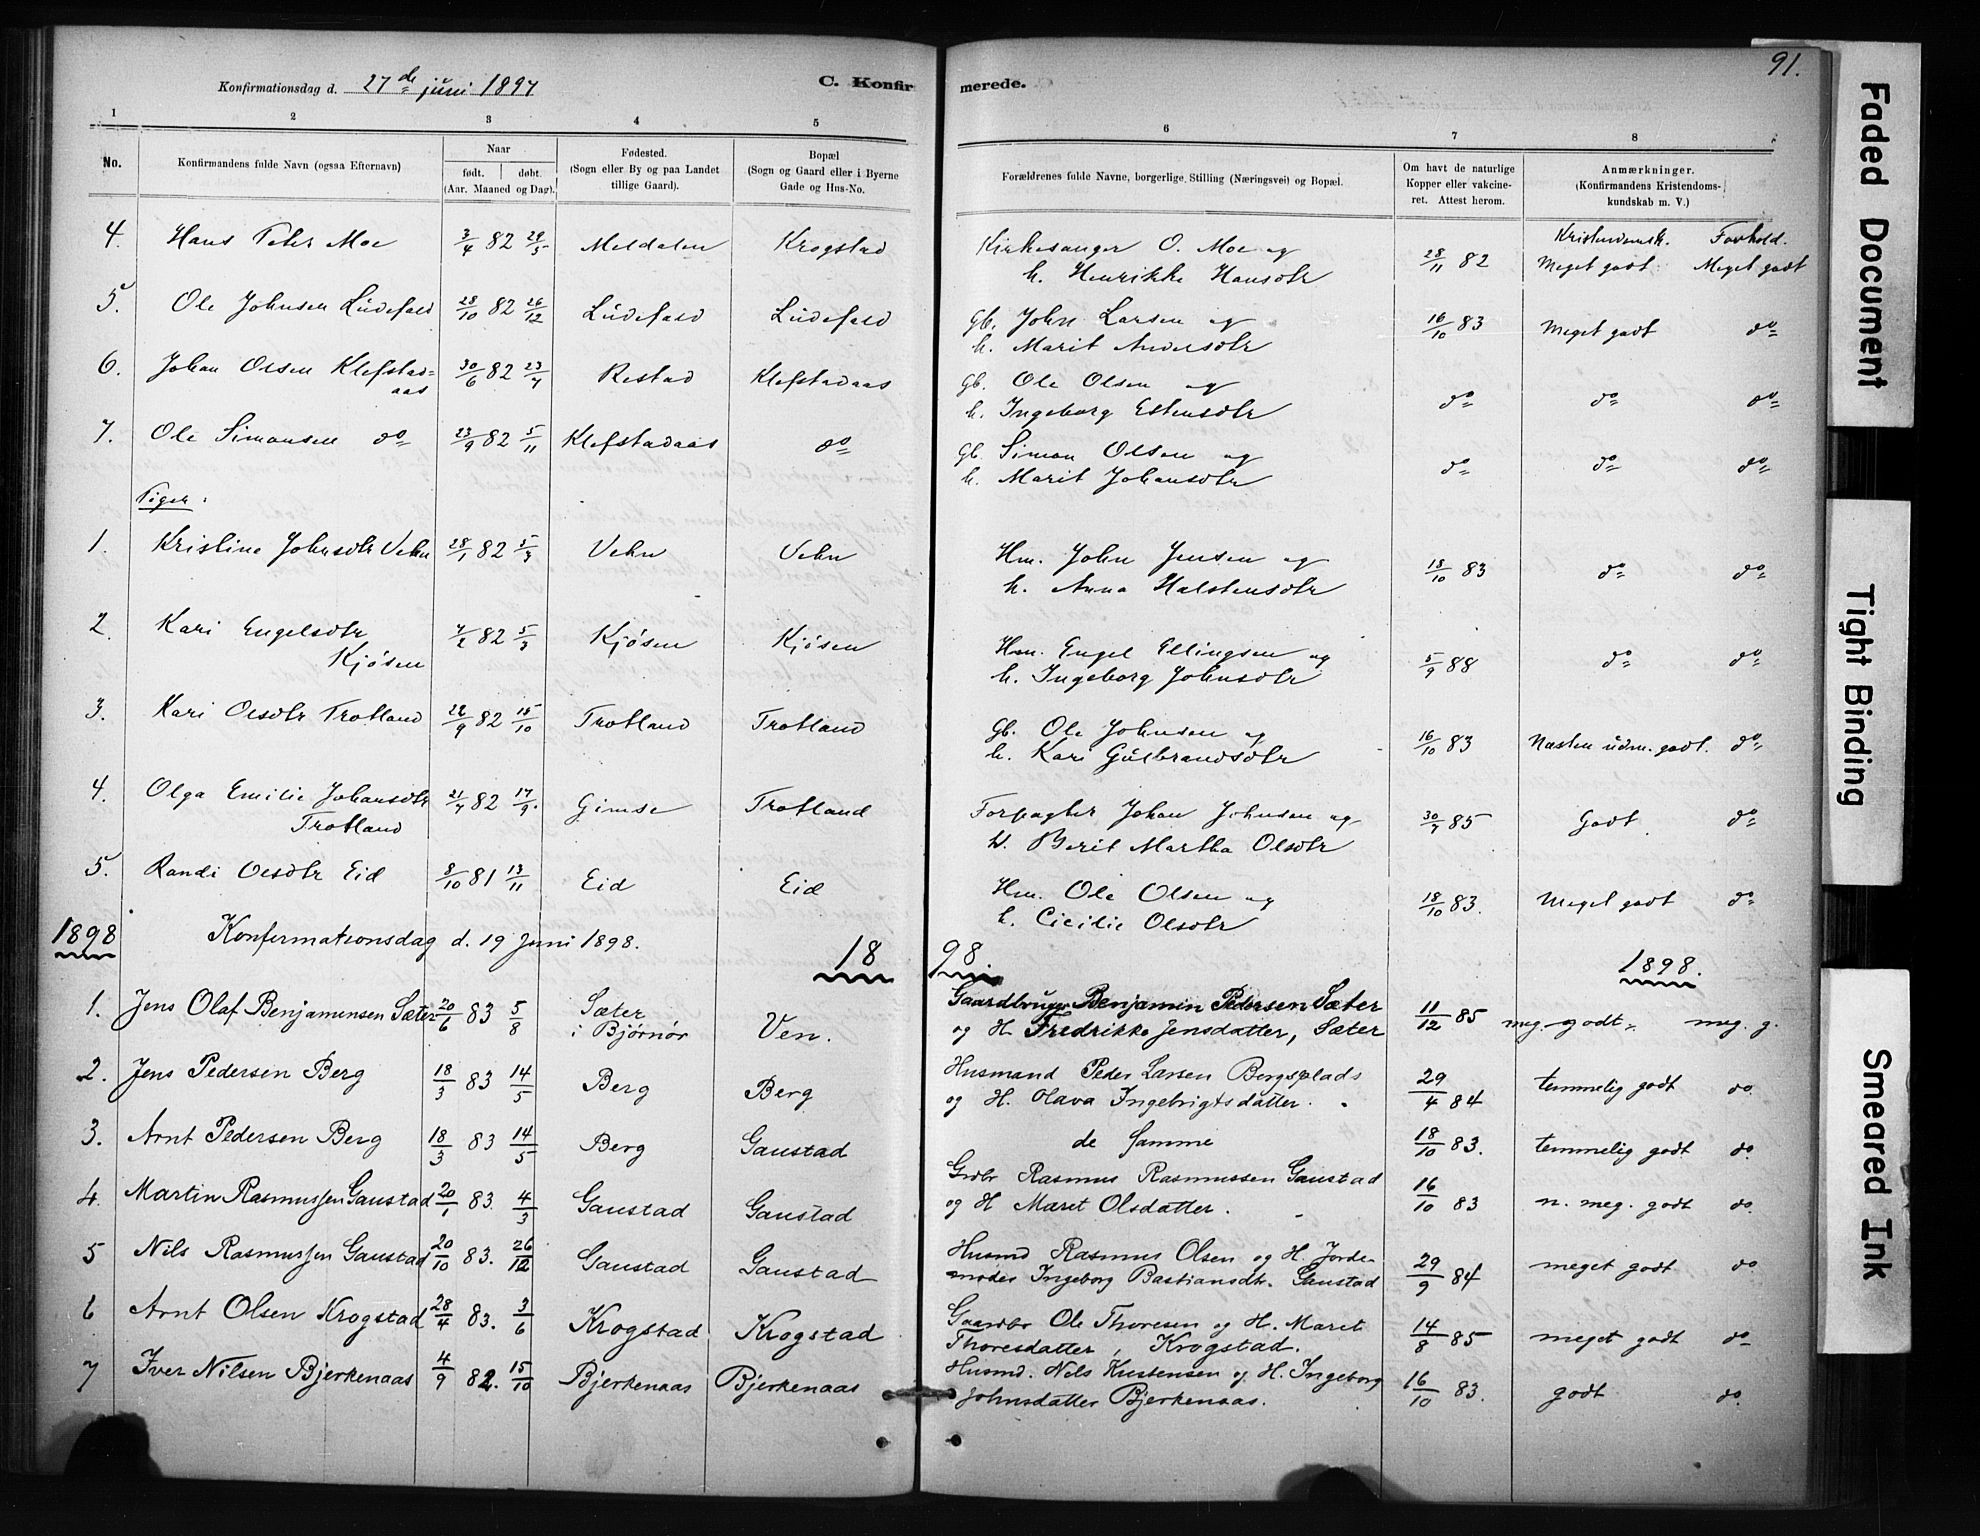 91.
Konfirmationsdag d. 27de juni 1897
C. Konfirmerede.
1 2 3 4 5 6 7 8
No.
Konfirmandens fulde Navn (ogsaa Efternavn)
Naar
født. døbt.
(Aar. Maaned og Dag).
Fødested.
(Sogn eller By og paa Landet
tillige Gaard).
Bopæl
(Sogn og Gaard eller i Byerne
Gade og Hus-No.
Forældrenes fulde Navne, borgerlige Stilling (Næringsvei) og Bopæl.
Om havt de naturlige
Kopper eller vakcine-
ret. Attest herom.
Anmærkninger.
(Konfirmandens Kristendoms-
kundskab m. V.)
Kristendomsk. Forhold.
4. Hans Peter Moe 3/4 82 29/5 Meldalen Krogstad Kirkesanger O. Moe og 28/11 82 Meget godt Meget godt
h. Henrikke Hansdtr
5. Ole Johnsen Ludefald 28/10 82 26/12 Ludefald Ludefald Gb. John Larsen og 16/10 83 Meget godt do
h. Marit Andersdtr
6. Johan Olsen Klefstad= 30/6 82 23/7 Restad Klefstadaas Gb. Ole Olsen og do do do
aas h. Ingeborg Estensdtr
7. Ole Simonsen do 23/9 82 5/11 Klefstadaas do Gb. Simon Olsen og do do do
h. Marit Johansdtr
Piger:
1. Kristine Johnsdtr Vehn 28/1 82 5/3 Vehn Vehn Hm. John Jensen og 18/10 83 do do
h. Anna Halstensdtr
2. Kari Engelsdtr 7/2 82 5/3 Kjøsen Kjøsen Hm. Engel Ellingsen og 5/9 88 do do
Kjøsen h. Ingeborg Johnsdtr
3. Kari Olsdtr Trotland 22/9 82 15/10 Trotland Trotland Gb. Ole Johnsen og 16/10 83 Næsten udm. godt. do
h. Kari Gulbrandsdtr
4. Olga Emilie Johansdtr 21/7 82 17/9. Gimse Trotland Forpagter Johan Johnsen og 30/7 85 Godt do
Trotland h. Berit Martha Olsdtr
5. Randi Olsdtr Eid 8/10 81 13/11 Eid Eid Hm. Ole Olsen og 18/10 83. Meget godt do
h. Cicilie Olsdtr
1898 Konfirmationsdag d. 19 Juni 1898. 18 98. 1898.
1. Jens Olaf Benjaminsen Sæter 20/6 83 5/8 Sæter Ven. Gaardbruger Benjamin Pedersen Sæter 11/12 85 meg. godt. meg. g.
i Bjørnør og H. Fredrikke Jensdatter, Sæter
2. Jens Pedersen Berg 18/3 83 14/5 Berg Berg Husmand Peder Larsen Bergsplads 29/4 84 temmelig godt do.
og H. Olava Ingebrigtsdatter.
3. Arnt Pedersen Berg 18/3 83 14/5 Berg Gaustad de samme 18/10 83. temmelig godt do.
4. Martin Rasmussen Gaustad 20/1 83. 4/3 Gaustad Gaustad Grdbr Rasmus Rasmussen Gaustad 16/10 83 n. meg. godt do.
og H Maret Olsdatter.
5 Nils Rasmussen Gaustad 20/10 83. 26/12 Gaustad Gaustad Husmd Rasmus Olsen og H. Jorde- 29/9 84 meget godt do
moder Ingeborg Bastiansdtr. Gaustad
6 Arnt Olsen Krogstad 28/4 83. 3/6 Krogstad Krogstad Gaardbr Ole Thoresen og H. Maret 14/8 85 meget godt do
Thoresdatter, Krogstad.
7 Iver Nilsen Bjerkenaas 4/9 82. 15/10 Bjerkenaas Bjerkenaas Husmd. Nils Kustensen og H. Ingeborg 16/10 83. godt do.
Johnsdatter Bjerkenaas.
Faded Document
Tight Binding
Smeared Ink